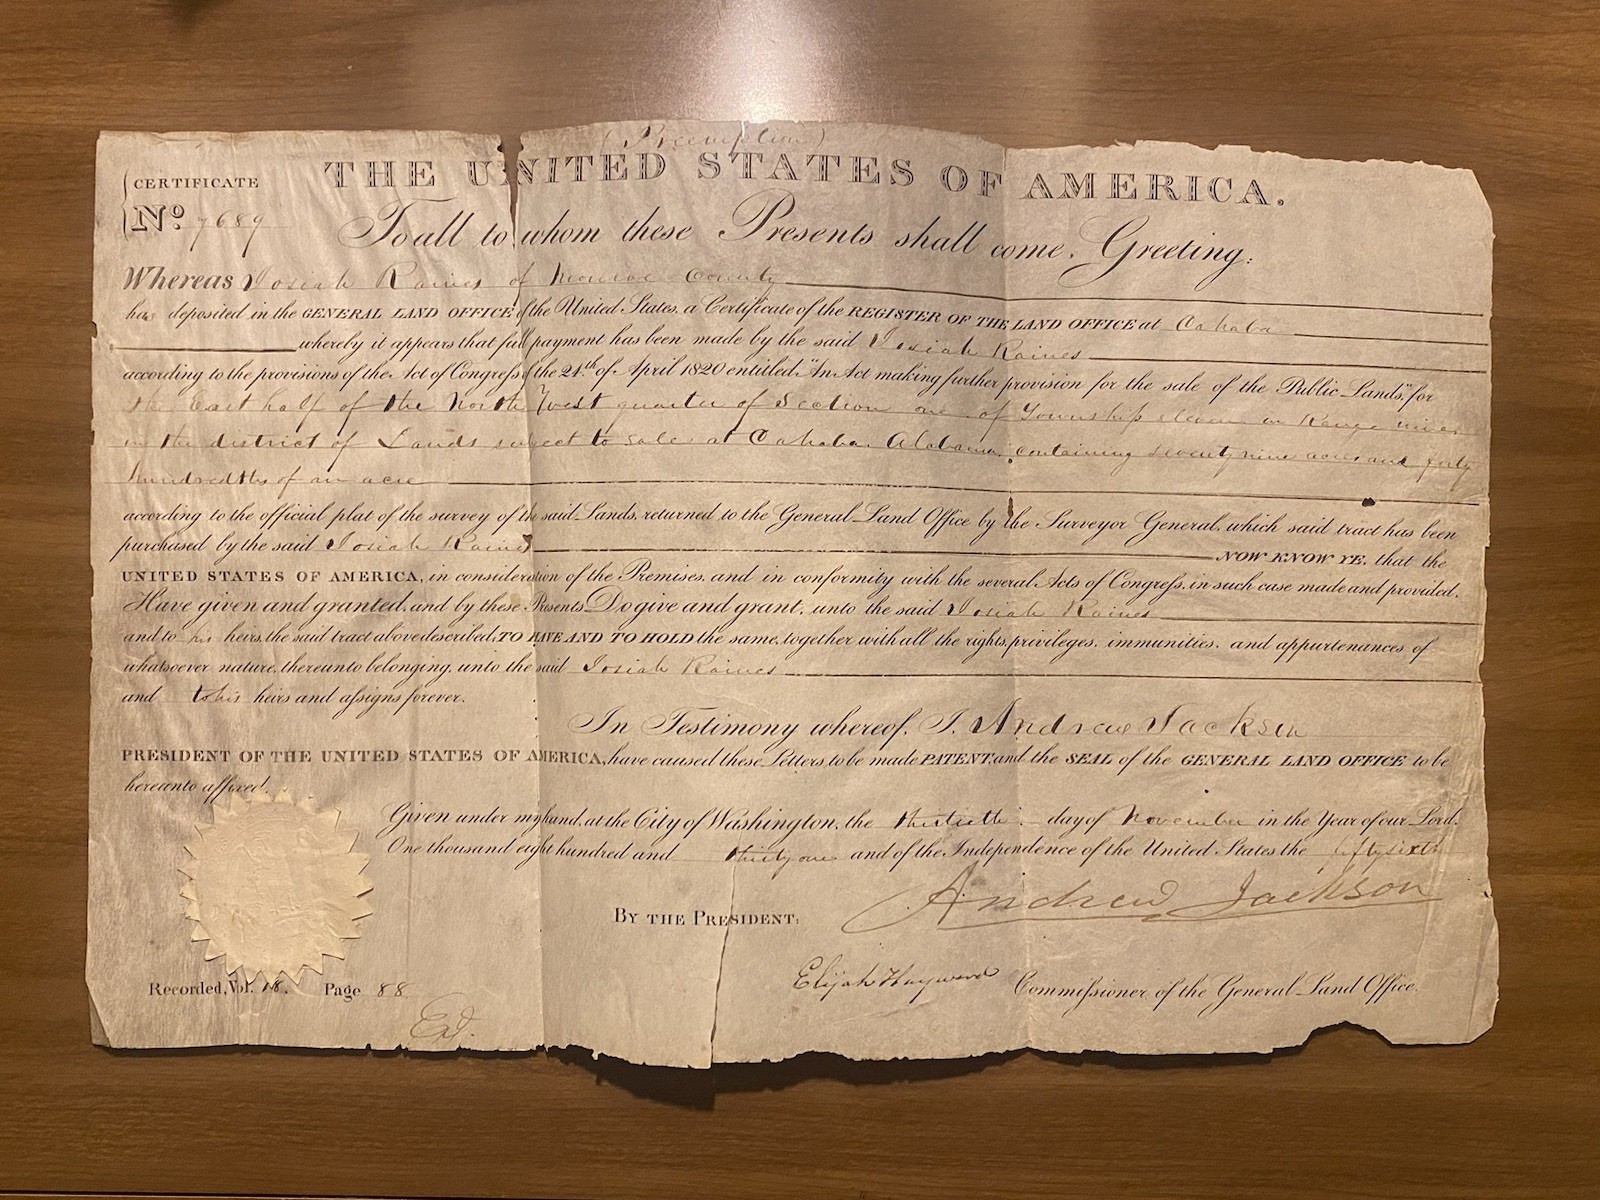 (Preemption)
THE UNITED STATES OF AMERICA.
CERTIFICATE
No. 7689
To all to whom these Presents shall come, Greeting:
Whereas Josiah Raines of Monroe County
has deposited in the GENERAL LAND OFFICE of the United States, a Certificate of the REGISTER OF THE LAND OFFICE at Cahaba
whereby it appears that full payment has been made by the said Josiah Raines
according to the provisions of the Act of Congress of the 24th of April 1820 entitled "An Act making further provision for the sale of the Public Lands," for
the East half of the North West quarter of Section one of Township eleven on Range nine
in the district of Lands subject to sale at Cahaba Alabama, containing seventy nine acres and forty
hundredths of an acre
according to the official plat of the survey of the said Lands, returned to the General Land Office by the Surveyor General, which said tract has been
purchased by the said Josiah Raines NOW KNOW YE, that the
UNITED STATES OF AMERICA, in consideration of the Premises, and in conformity with the several Acts of Congress, in such case made and provided,
Have given and granted, and by these Presents Do give and grant, unto the said Josiah Raines
and to his heirs, the said tract above described, TO HAVE AND TO HOLD the same, together with all the rights, privileges, immunities, and appurtenances of
whatsoever nature, thereunto belonging, unto the said Josiah Raines
and to his heirs and assigns forever.
In Testimony whereof, I, Andrew Jackson
PRESIDENT OF THE UNITED STATES OF AMERICA, have caused these Letters to be made PATENT, and the SEAL of the GENERAL LAND OFFICE to be
hereunto affixed.
Given under my hand, at the City of Washington, the thirtieth day of November in the Year of our Lord,
One thousand eight hundred and thirty one and of the Independence of the United States the fifty sixth
Andrew Jackson
BY THE PRESIDENT:
Elijah Hayward Commissioner of the General Land Office.
Recorded, Vol. 18. Page 88